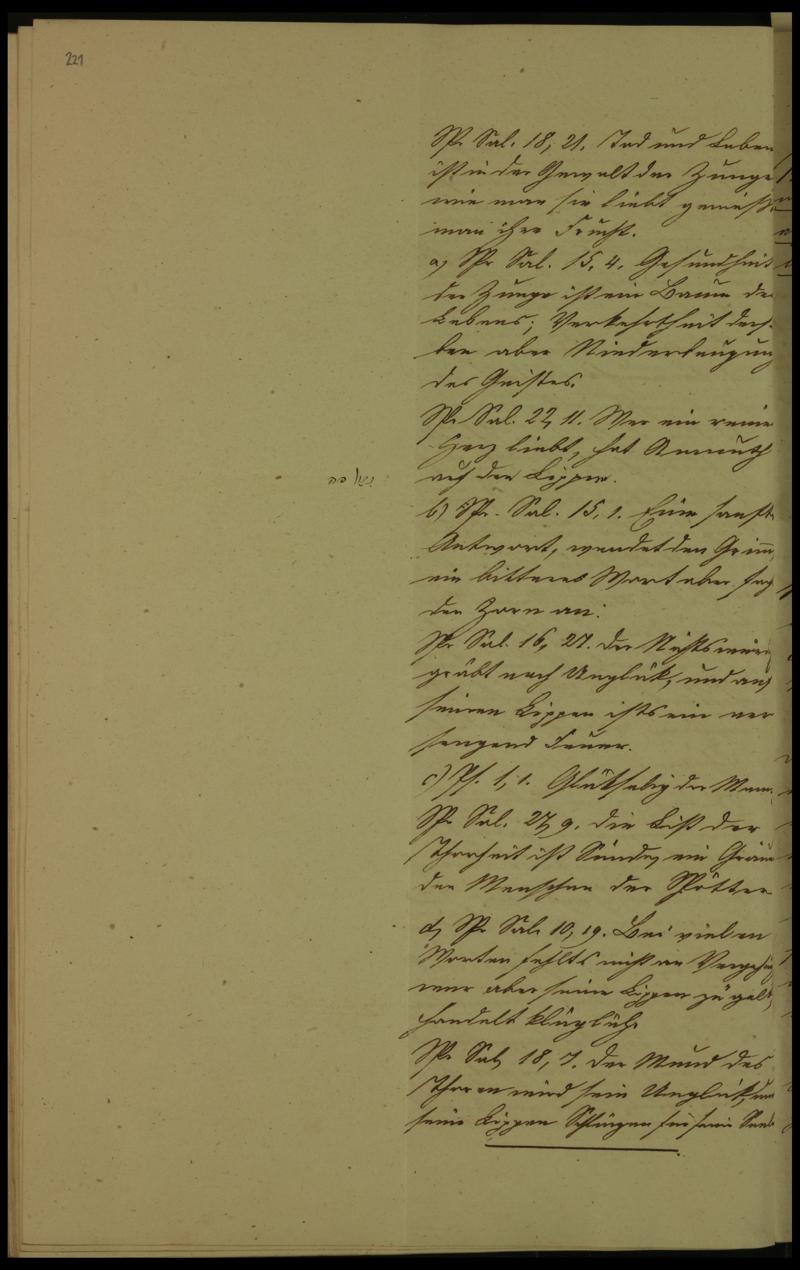 221
Spr. Sal. 18, 21. Tod und Leben
ist in der Gewalt der Zunge
wie man sie liebt genießt
man ihre Frucht.
a) Spr. Sal. 15, 4. Gesundheit
der Zunge ist ein Baum des
Lebens; Verkehrtheit ders.
ben aber Niederbeugung
des Geistes.
Spr. Sal. 22, 11. Wer ein reines
Herz liebt, hat Anmuth
auf den Lippen.
b) Spr. Sal. 15, 1. Eine sanfte
Antwort, wendet den Grimm,
ein bitteres Wort aber fag
den Zorn an.
Spr. Sal. 16, 27. Der Nichtswürdig
gräbt nach Unglük, und auf
seinen Lippen ists ein ver
sengend Feuer.
c) Ps. 1, 1. Glükselig der Mann.
Spr. Sal. 24, 9. Die List der
Thorheit ist Sünde, ein Gräuel
den Menschen der Spötter
d) Spr. Sal. 10, 19. Bei vielen
Worten fehlts nicht an Vergehung
wer aber seine Lippen zügelt,
handelt klüglich.
Spr. Sal. 18, 7. Der Mund des
Thoren wird sein Unglük, und
seine Lippen Schlingen für seine Seele